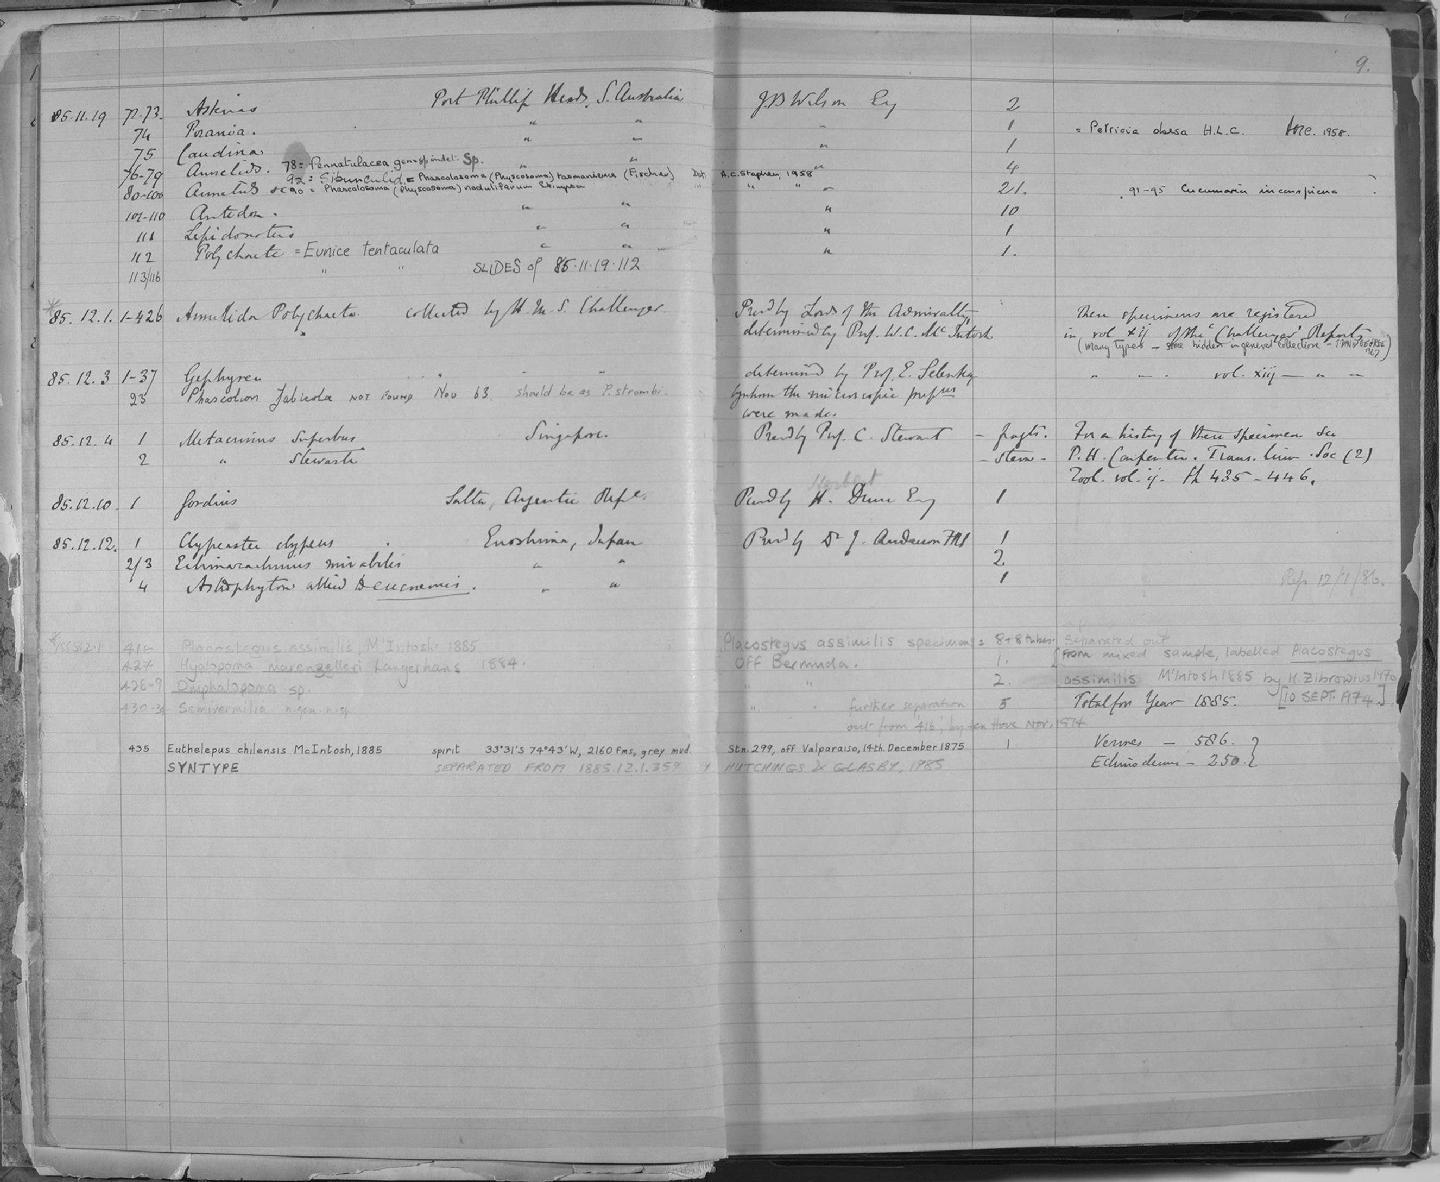 9.
85.11.19 72-73. Asterias Port Phillip Heads, S. Australia J B Wilson Esq 2
74 Porania. " " " 1 = Petricia obesa H.L.C. 1958.
75 Caudina. " " " 1
76-79 Annelids. 78 = Pennatulacea gen. sp. indet. Sp. " " " 4
92 = Sipunculid = Phascolosoma (Physcosoma) tasmaniense (Fischer) Det. A.C. Stephen, 1958
80-100 90 = Phascolosoma (Physcosoma) noduliferum Stimpson " " " 21. 91-95 Cucumaria inconspicua
101-110 Antedon. " " " 10
111 Lepidonotus " " " 1
112 Polychaete = Eunice tentaculata " " " 1.
113/116 " " SLIDES of 85.11.19.112
85.12.1. 1-426 Annelida Polychaeta collected by H.M.S. Challenger Presd by Lords of the Admiralty These specimens are registered
" determined by Prof. W.C. McIntosh in vol. xij of the 'Challenger' Reports
(Many types - hidden in general collection -
85.12.3 1-37 Gephyrea " " determined by Prof. E. Selenka " " vol. xiij — " "
23 Phascolion NOT FOUND Nov 63. should be as P. strombi. by whom the microscopic prepns
were made.
85.12.4 1 Metacrinus superbus Singapore. Presd by Prof. C. Stewart - fragts. For a history of these specimens see
2 " Stewarti - stem - P.H. Carpenter. Trans. Linn. Soc (2)
Zool. vol. ij. pp 435-446.
Herbert
85.12.10. 1 Gordius Salta, Argentine Repc. Presd by H. Esq 1
85.12.12. 1 Clypeaster clypeus Enoshima, Japan Presd by Dr J. Anderson FRS 1
2/3 Echinarachnius mirabilis " " 2.
4 Astrophyton allied to eucnemis. " " 1 Rep 12/1/86.
1885.12.1 416 Placostegus assimilis, McIntosh 1885 Placostegus assimilis specimens = 8+8 tubes. Separated out
427 Hyalopoma marenzelleri Langerhans 1884. Off Bermuda. 1. from mixed sample, labelled Placostegus
428-9 Omphalopoma sp. " " 2. assimilis McIntosh 1885 by H. Zibrowius 1970
430-34 Semivermilia n.gen. n.sp. " " further separation 5 Total for Year 1885. [10 SEPT. 1974.]
out from '416', by ten Hove Nov. 1974
435 Euthelepus chilensis McIntosh, 1885 spirit 33°31'S 74°43'W, 2160 Fms, grey mud. Stn. 299, off Valparaiso, 14th. December 1875 1 Vermes — 586.
SYNTYPE SEPARATED FROM 1885.12.1.359 HUTCHINGS & GLASBY, 1985 Echinoderms — 250.